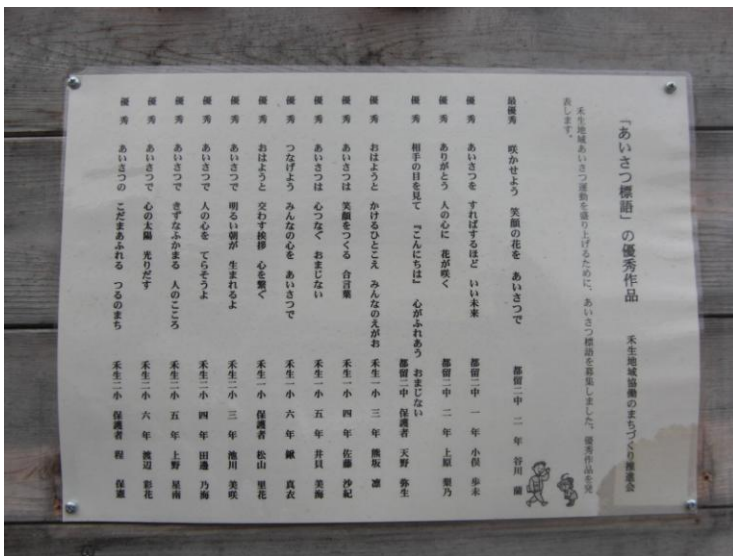 「あいさつ標語」の優秀作品
禾生地域協働のまちづくり推進会
禾生地域あいさつ運動を盛り上げるために、あいさつ標語を募集しました。優秀作品を発
表します。
最優秀 咲かせよう 笑顔の花を あいさつで 都留二中 二年 谷川 蘭
優秀 あいさつを すればするほど いい未来 都留二中 一年 小俣 歩未
優秀 ありがとう 人の心に 花が咲く 都留二中 二年 上原 梨乃
優秀 相手の目を見て 『こんにちは』 心がふれあう おまじない 都留二中 保護者 天野 弥生
優秀 おはようと かけるひとこえ みんなのえがお 禾生一小 三年 熊坂 凛
優秀 あいさつは 笑顔をつくる 合言葉 禾生一小 四年 佐藤 沙紀
優秀 あいさつは 心つなぐ おまじない 禾生一小 五年 井貝 美海
優秀 つなげよう みんなの心を あいさつで 禾生一小 六年 鍬 真衣
優秀 おはようと 交わす挨拶 心を繋ぐ 禾生一小 保護者 松山 里花
優秀 あいさつで 明るい朝が 生まれるよ 禾生二小 三年 池川 美咲
優秀 あいさつで 人の心を てらそうよ 禾生二小 四年 田邊 乃海
優秀 あいさつで きずなふかまる 人のこころ 禾生二小 五年 上野 星南
優秀 あいさつで 心の太陽 光りだす 禾生二小 六年 渡辺 彩花
優秀 あいさつの こだまあふれる つるのまち 禾生二小 保護者 程 保憲